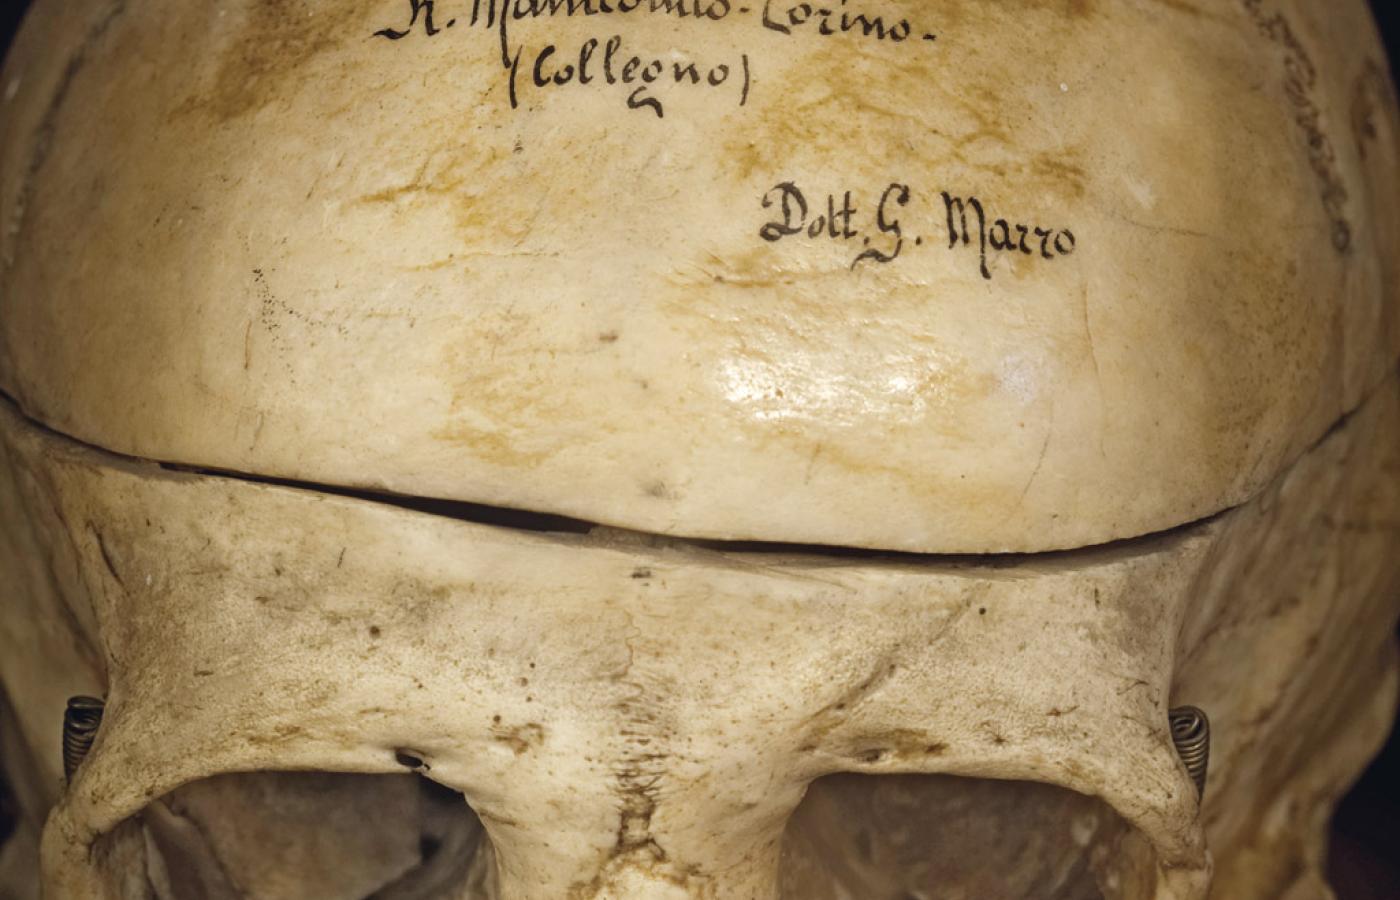 R. Manicomio - Torino -
(Collegno)
Dott. G. Marro